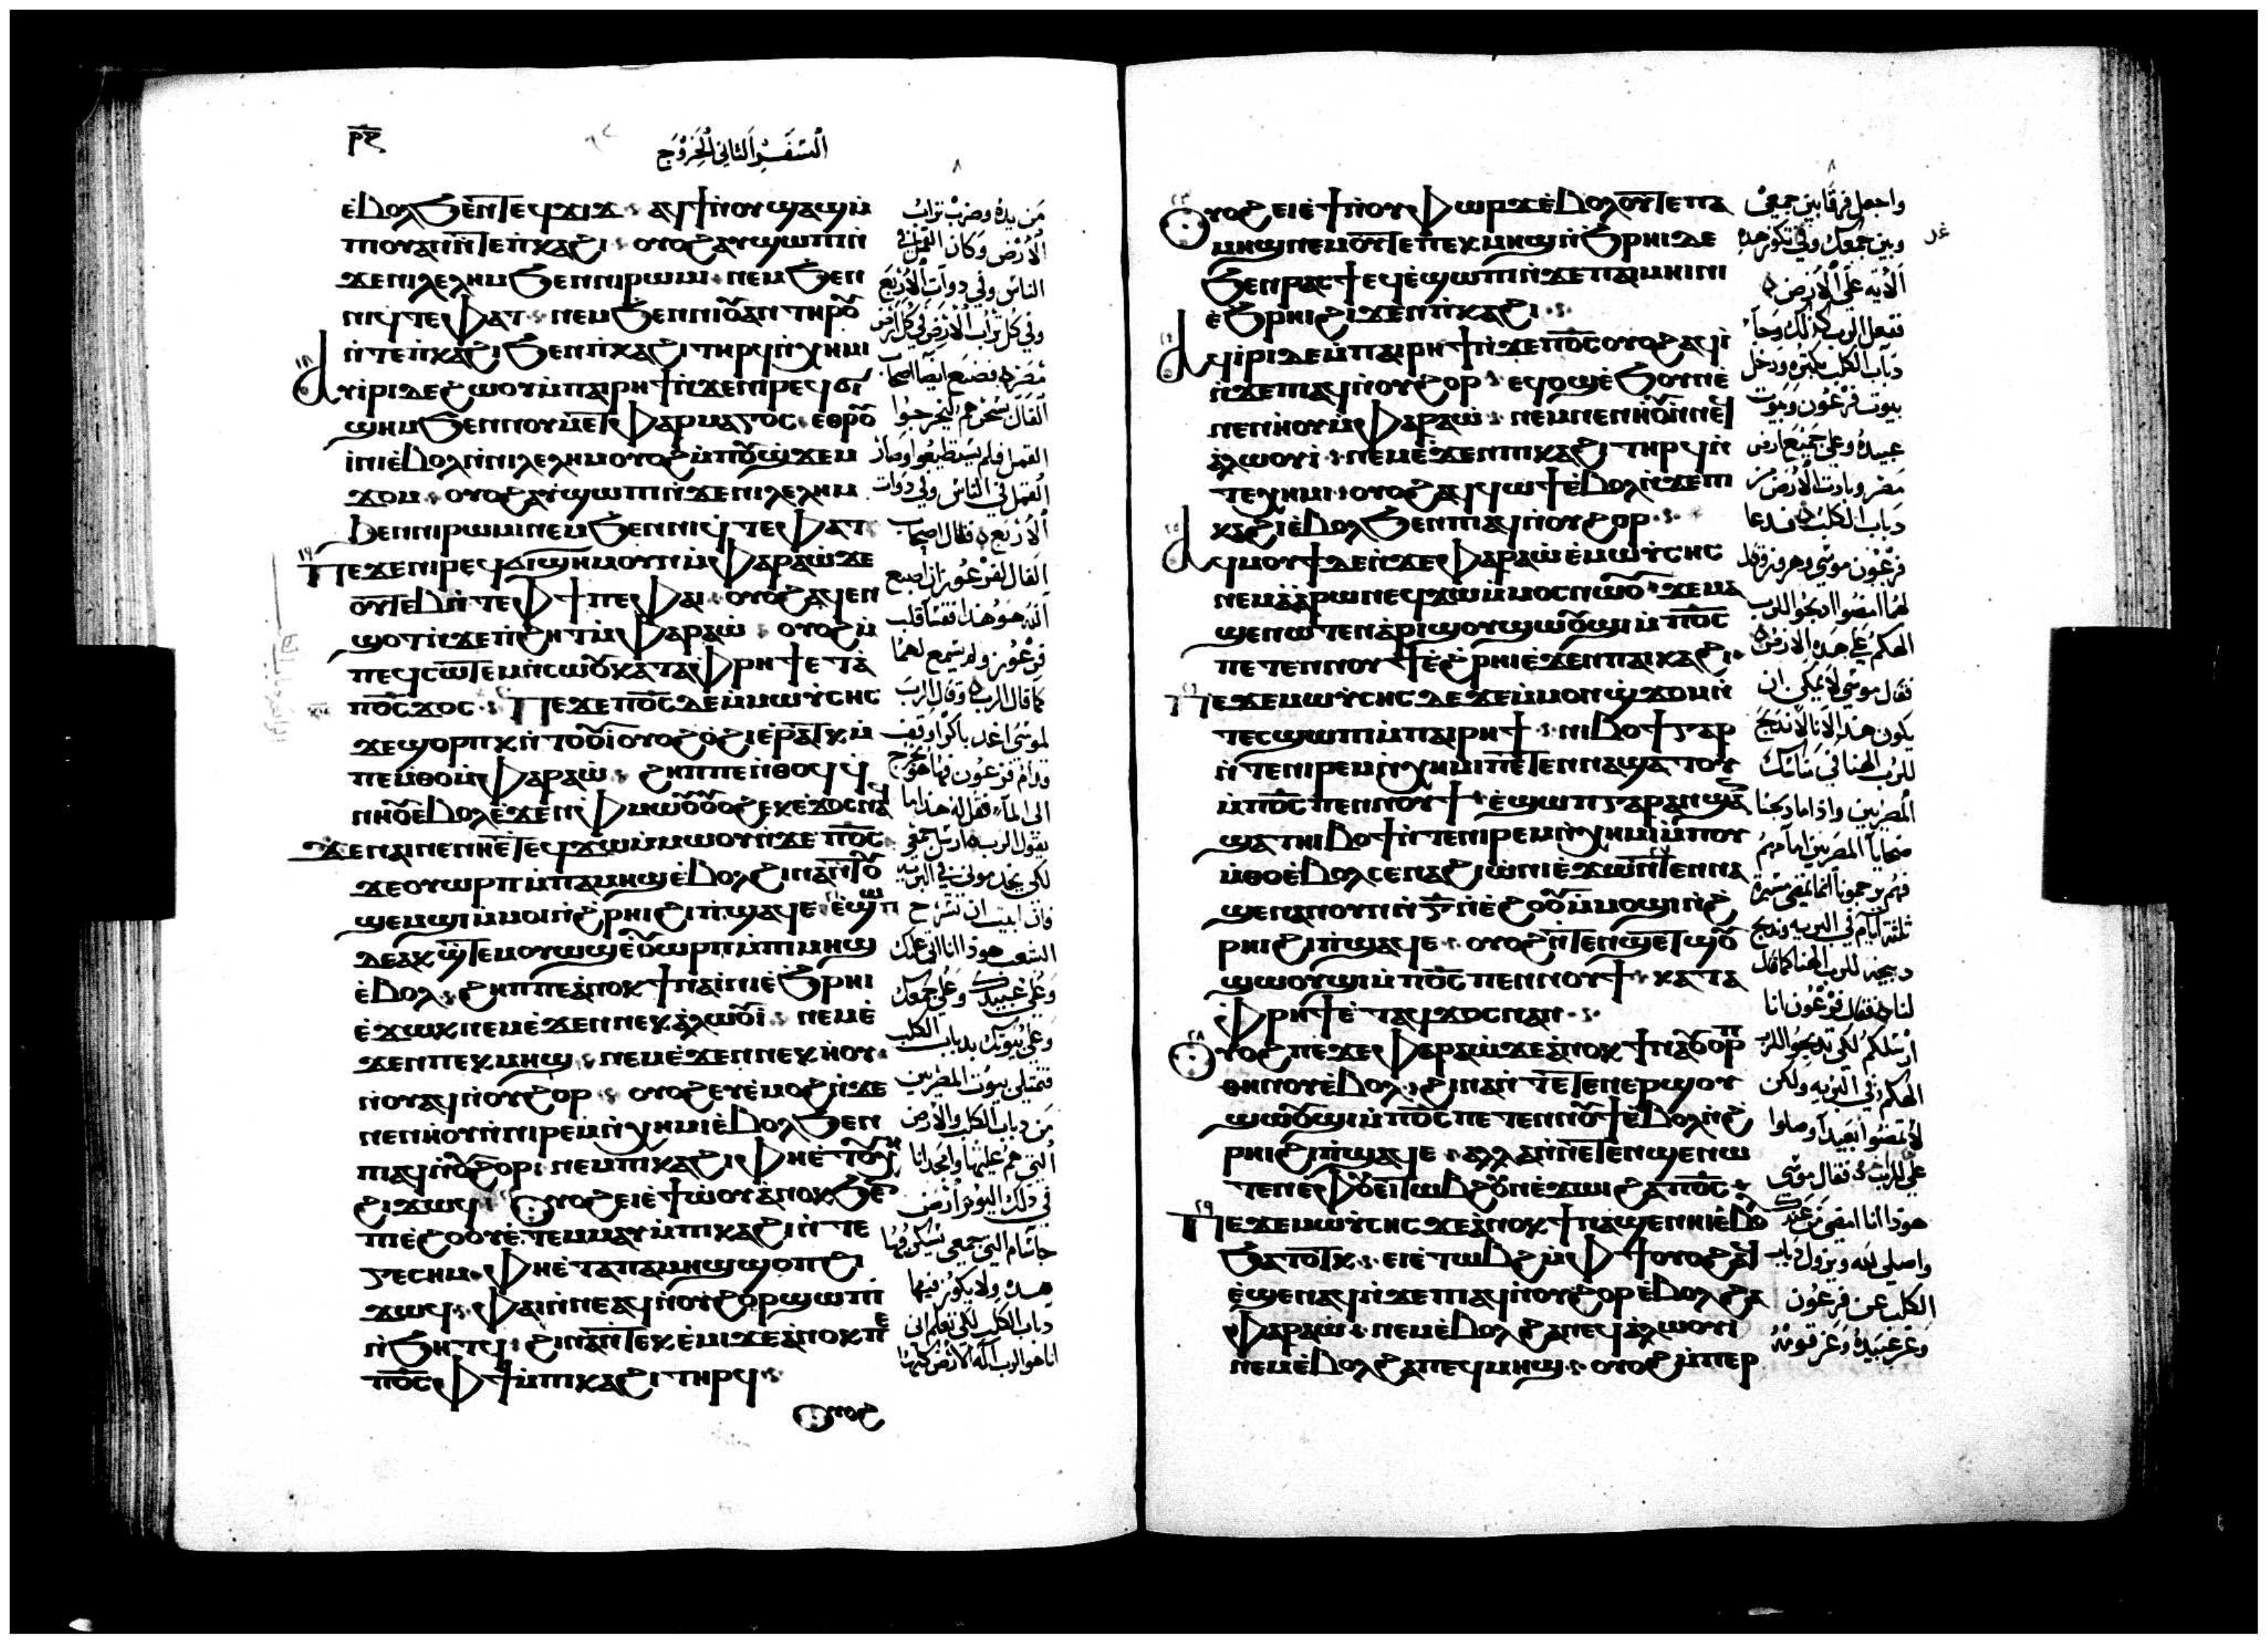 ⲣ̅ϩ̅
السفر الثاني الخروج
ⲉ̀ⲃⲟⲗϧⲉⲛⲧⲉϥϫⲓϫ ⲁϥϯⲛⲟⲩϣⲁϣⲙ̀
ⲡⲟⲩⲁⲓⲛ̀ⲧⲉⲡ̀ⲕⲁϩⲓ ⲟⲩⲟϩⲁⲩϣⲱⲡⲓⲛ̀
ϫⲉⲛⲓⲗⲉⲗⲏⲙϧⲉⲛⲛⲓⲣⲱⲙⲓ ⲛⲉⲙϧⲉⲛ
ⲛⲓϥⲧⲉⲫⲁⲧ ⲛⲉⲙϧⲉⲛⲛⲓⲟ̅ⲁⲛ ⲧⲏⲣⲟ̅
ⲛ̀ⲧⲉⲡ̀ⲕⲁϩⲓϧⲉⲛⲡ̀ⲕⲁϩⲓⲧⲏⲣϥⲛ̀ⲭⲏⲙⲓ
ⲁⲩⲓ̀ⲣⲓⲇⲉϩⲱⲟⲩⲙ̀ⲡⲁⲓⲣⲏϯⲛ̀ϫⲉⲛⲓⲣⲉϥϭⲓ
ϣⲏⲙϧⲉⲛⲛⲟⲩⲙⲉⲧⲫⲁⲣⲙⲁⲅⲟⲥ ⲉⲑⲣⲟ̅
ⲓ̀ⲛⲓⲉ̀ⲃⲟⲗⲛ̀ⲛⲓⲗⲉⲗⲏⲙⲟⲩⲟϩⲙ̀ⲡⲟ̅ϣϫⲉⲙ
ϫⲟⲙ ⲟⲩⲟϩⲁⲩϣⲱⲡⲓⲛ̀ϫⲉⲛⲓⲗⲉⲗⲏⲙ
ϧⲉⲛⲛⲓⲣⲱⲙⲓⲛⲉⲙϧⲉⲛⲛⲓϥⲧⲉⲫⲁⲧ
ⲡⲉϫⲉⲛⲓⲣⲉϥϭⲓϣⲏⲙⲟⲩⲛⲙ̀ⲫⲁⲣⲁⲱ̀ϫⲉ
ⲟⲩⲧⲉⲃⲛ̀ⲧⲉⲫϯⲡⲉⲫⲁⲓ ⲟⲩⲟϩⲁϥⲉⲛ
ϣⲟⲧⲛ̀ϫⲉⲡ̀ϩⲏⲧⲙ̀ⲫⲁⲣⲁⲱ̀ ⲟⲩⲟϩⲙ̀
ⲡⲉϥⲥⲱⲧⲉⲙⲛ̀ⲥⲱⲟ̅ⲕⲁⲧⲁⲫⲣⲏϯⲉⲧⲁ
ⲡⲟ̅ⲥ̅ϫⲟⲥ ⲡⲉϫⲉⲡⲟ̅ⲥ̅ⲇⲉⲙ̀ⲙⲱⲩ̀ⲥⲏⲥ
ϫⲉϣⲟⲣⲡⲕⲛ̀ⲧⲟⲟ̅ⲓⲟⲩⲟϩⲟ̀ϩⲓⲉⲣⲁⲧⲕⲙ̀
ⲡⲉⲙ̀ⲑⲟⲙ̀ⲫⲁⲣⲁⲱ̀ ϩⲏⲡⲡⲉⲛ̀ⲑⲟϥϥ̀
ⲛⲏⲟ̅ⲉ̀ⲃⲟⲗⲉ̀ϫⲉⲛⲫⲙⲱⲟ̅ⲟ̅ⲟϩⲉⲕⲉ̀ϫⲟⲥⲛⲁϥ
ϫⲉⲛⲁⲓⲛⲉⲛⲏⲉⲧⲉϥϫⲱⲙ̀ⲙⲱⲟⲩⲛ̀ϫⲉⲡⲟ̅ⲥ̅
ϫⲉⲟⲩⲱⲣⲡⲙ̀ⲡⲁⲙⲏϣⲉ̀ⲃⲟⲗϩⲓⲛⲁⲛ̀ⲧⲟ̅
ϣⲉⲙϣⲓⲙ̀ⲙⲟⲓⲛ̀ϩ̀ⲣⲏⲓϩⲓⲡ̀ϣⲁϥⲉ ⲉ̀ϣⲱⲡ
ⲇⲉⲁⲕϣⲧⲉⲙⲟⲩⲱϣⲉⲟ̅ⲱⲣⲡⲙ̀ⲡⲓⲙⲏϣ
ⲉ̀ⲃⲟⲗ ϩⲏⲡⲡⲉⲁ̀ⲛⲟⲕϯⲛⲁⲓ̀ⲛⲓⲉ̀ϧⲣⲏⲓ
ⲉ̀ϫⲱⲕⲛⲉⲙⲉ̀ϫⲉⲛⲛⲉⲕⲁ̀ⲗⲱⲟ̅ⲓ ⲛⲉⲙⲉ̀
ϫⲉⲛⲡⲉⲕⲙⲏϣ ⲛⲉⲙⲉ̀ϫⲉⲛⲛⲉⲕⲏ̀ⲟⲩ
ⲛ̀ⲟⲩⲁϥⲛ̀ⲟⲩϩⲟⲣ ⲟⲩⲟϩⲉⲩⲉ̀ⲙⲟϩⲛ̀ϫⲉ
ⲛⲉⲛⲏⲟⲩⲛ̀ⲛⲓⲣⲉⲙⲛ̀ⲭⲏⲙⲓⲉ̀ⲃⲟⲗϧⲉⲛ
ⲡⲓⲁϥⲛ̀ⲟ̅ϩⲟⲣ ⲛⲉⲙⲡⲓⲕⲁϩⲓⲫⲏⲉ̀ⲧⲟⲩⲭⲏ
ϩⲓϫⲱϥ ⲟⲩⲟϩⲉⲓⲉ̀ϯⲱ̀ⲟⲩⲁ̀ⲛⲟⲕϧⲉⲛ
ⲡⲓⲉ̀ϩⲟⲟⲩⲉ̀ⲧⲉⲙⲙⲁⲩⲙ̀ⲡⲓⲕⲁϩⲓⲛ̀ⲧⲉ
ⲅⲉⲥⲏⲙ ⲫⲏⲉ̀ⲧⲁⲡⲁⲙⲏϣϣⲟⲡϩⲓ
ϫⲱϥ ⲫⲁⲓⲛ̀ⲛⲉⲁϥⲛ̀ⲟⲩϩⲟⲣϣⲱⲡⲓ
ⲛ̀ϧⲏⲧϥ ϩⲓⲛⲁⲛ̀ⲧⲉⲕⲉ̀ⲙⲓϫⲉⲁ̀ⲛⲟⲕⲡⲉ
ⲡⲟ̅ⲥ̅ⲫϯⲙ̀ⲡⲓⲕⲁϩⲓⲧⲏⲣϥ
ⲟⲩⲟϩ
من يده وضرب تراب
الارض وكان القمل في
الناس وفي دوات الاربع
وفي كل تراب الارض في كل ارض
مصر فصنع ايضا اصحاب
الفال بسحرهم ليخرجوا
القمل فلم يستطيعوا وصار
القمل في الناس وفي دوات
الاربع فقال اصحاب
الفال لفرعون ان اصبع
الله هو هذا فقسا قلب
فرعون ولم يسمع لهما
كما قال الرب وقال الرب
لموسى اغد باكرا وقف
قدام فرعون فها هو يخرج
الى الماء فقل له هذا ما
يقول الرب ارسل جمعي
لكي يخدموني في البريه
فان ابيت ان تسرح
الشعب هوذا انا اتي عليك
وعلى عبيدك وعلى جمعك
وعلى بيوتك بدباب الكلب
فتمتلي بيوت المصريين
من دباب الكلب والارض
التي هم عليها وامجد انا
في ذلك اليوم ارض
جاسام التي جمعي سيكون فيها
هذه ولا يكون فيها
دباب الكلب لكي تعلم اني
انا هو الرب اله الارض كلها
ⲟⲩⲟϩⲉⲓⲉ̀ϯⲛ̀ⲟⲩⲫⲱⲣϫⲉ̀ⲃⲟⲗⲟⲩⲧⲉⲡⲁ
ⲙⲏϣⲛⲉⲙⲟⲩⲧⲉⲡⲉⲕⲙⲏϣⲛ̀ϧⲣⲏⲓⲇⲉ
ϧⲉⲛⲣⲁⲥϯⲉϥⲉ̀ϣⲱⲡⲓⲛ̀ϫⲉⲡⲁⲓⲙⲏⲓⲛⲓ
ⲉ̀ϧⲣⲏⲓϩⲓϫⲉⲛⲡ̀ⲕⲁϩⲓ
ⲁϥⲓ̀ⲣⲓⲇⲉⲙ̀ⲡⲁⲓⲣⲏϯⲛ̀ϫⲉⲡⲟ̅ⲥ̅ⲟⲩⲟϩⲁϥⲓ̀
ⲛ̀ϫⲉⲡⲓⲁϥⲛ̀ⲟⲩϩⲟⲣ ⲉϥⲟϣⲉ̀ϧⲟⲩⲛⲉ̀
ⲛⲉⲛⲏ̀ⲟⲩⲙ̀ⲫⲁⲣⲁⲱ̀ ⲛⲉⲙⲛⲉⲛⲏⲟ̅ⲛ̀ⲛⲉϥ
ⲁ̀ⲗⲱⲟⲩⲓ̀ ⲛⲉⲙⲉ̀ϫⲉⲛⲡⲓⲕⲁϩⲓⲧⲏⲣϥⲛ̀
ⲧⲉⲭⲏⲙⲓ ⲟⲩⲟϩⲁϥϥⲱϯⲉ̀ⲃⲟⲗⲛ̀ϫⲉⲡⲓ
ⲕⲁϩⲓⲉ̀ⲃⲟⲗϧⲉⲛⲡⲓⲁϥⲛ̀ⲟⲩϩⲟⲣ
ⲁϥⲙⲟⲩϯⲇⲉⲛ̀ϫⲉⲫⲁⲣⲁⲱ̀ⲉ̀ⲙⲱⲩ̀ⲥⲏⲥ
ⲛⲉⲙⲁ̀ⲁ̀ⲣⲱⲛⲉϥϫⲱⲙ̀ⲙⲟⲥⲛⲱⲟ̅ ϫⲉⲙⲁ
ϣⲉⲛⲱⲧⲉⲛⲁ̀ⲣⲓϣⲟⲩϣⲱⲟ̅ϣⲓⲙ̀ⲡⲟ̅ⲥ̅
ⲡⲉⲧⲉⲛⲛⲟⲩϯⲉ̀ϩ̀ⲣⲏⲓⲉ̀ϫⲉⲛⲡⲁⲓⲕⲁϩⲓ
ⲡⲉϫⲉⲙⲱⲩ̀ⲥⲏⲥⲇⲉϫⲉⲙ̀ⲙⲟⲛϣ̀ϫⲟⲙⲛ̀
ⲧⲉⲥϣⲱⲡⲓⲙ̀ⲡⲁⲓⲣⲏϯ ⲛⲓⲃⲟϯⲅⲁⲣ
ⲛ̀ⲧⲉⲛⲓⲣⲉⲙⲛ̀ⲭⲏⲙⲓⲡⲉⲧⲉⲛⲛⲁϣⲁⲧⲟⲩ
ⲙ̀ⲡⲟ̅ⲥ̅ⲡⲉⲛⲛⲟⲩϯ ⲉ̀ϣⲱⲡⲅⲁⲣⲁⲛϣⲁⲛ
ϣⲁⲧⲛⲓⲃⲟϯⲛ̀ⲧⲉⲛⲓⲣⲉⲙⲛ̀ⲭⲏⲙⲓⲙ̀ⲡⲟⲩ
ⲙ̀ⲑⲟⲉ̀ⲃⲟⲗⲥⲉⲛⲁϩⲓⲱ̀ⲛⲓⲉ̀ϫⲱⲛⲧⲉⲛⲛⲁ
ϣⲉⲛⲁⲛⲟⲩⲛ̀ⲅ̅ⲛ̀ⲉ̀ϩⲟⲟ̅ⲙ̀ⲙⲟϣⲓⲛ̀ϩ̀
ⲣⲏⲓϩⲓⲡ̀ϣⲁϥⲉ ⲟⲩⲟϩⲛ̀ⲧⲉⲛϣⲉⲧϣⲟ̅
ϣⲱⲟⲩϣⲓⲙ̀ⲡⲟ̅ⲥ̅ⲡⲉⲛⲛⲟⲩϯ ⲕⲁⲧⲁ
ⲫⲣⲏϯⲉ̀ⲧⲁϥϫⲟⲥⲛⲁⲛ
ⲟⲩⲟϩⲡⲉϫⲉⲫⲁⲣⲁⲱ̀ϫⲉⲁ̀ⲛⲟⲕϯⲛⲁⲟ̅ⲟⲣⲡ
ⲑⲏⲛⲟⲩⲉ̀ⲃⲟⲗ ϩⲓⲛⲁⲛ̀ⲧⲉⲧⲉⲛⲉⲣϣⲟⲩ
ϣⲱⲟ̅ϣⲓⲙ̀ⲡⲟ̅ⲥ̅ⲡⲉⲧⲉⲛⲛⲟ̅ϯⲉ̀ⲃⲟⲗⲛ̀ϩ̀
ⲣⲏⲓϩⲓⲡ̀ϣⲁϥⲉ ⲁⲗⲗⲁⲛ̀ⲛⲉⲧⲉⲛϣⲉⲛⲱ
ⲧⲉⲛⲉ̀ⲫⲟ̅ⲉⲓⲧⲱⲃϩⲟ̅ⲛⲉ̀ϫⲱⲓϩⲁⲡⲟ̅ⲥ̅
ⲡⲉϫⲉⲙⲱⲩ̀ⲥⲏⲥϫⲉⲁ̀ⲛⲟⲕϯⲛⲁϣⲉⲛⲏⲓⲉ̀ⲃⲟⲗ
ϧⲁⲧⲟⲧⲕ ⲉⲓⲉ̀ⲧⲱⲃϩⲙ̀ⲫϯⲟⲩⲟϩϥ
ⲉ̀ϣⲉⲛⲁϥⲛ̀ϫⲉⲡⲓⲁϥⲛ̀ⲟⲩϩⲟⲣⲉ̀ⲃⲟⲗϩⲁ
ⲫⲁⲣⲁⲱ̀ ⲛⲉⲙⲉ̀ⲃⲟⲗϩⲁⲛⲉϥⲁ̀ⲗⲱⲟⲩⲓ
ⲛⲉⲙⲉ̀ⲃⲟⲗϩⲁⲡⲉϥⲙⲏϣ ⲟⲩⲟϩⲙ̀ⲡⲉⲣ
واجعل فرقا بين جمعي
وبين جمعك وفي تكون هذه
الايه على الارض
ففعل الرب كذلك وجاء
دباب الكلب بكثره ودخل
بيوت فرعون وبيوت
عبيده وعلى جميع ارض
مصر وبادت الارض من
دباب الكلب فدعا
فرعون موسى وهرون وقال
لهما امضوا ادبحوا للرب
الهكم على هذه الارض
فقال موسى لا يمكن ان
يكون هذا لاننا ندبح
للرب الهنا
المصريين واذا ما دبحنا
ضحايا المصريين امامهم
فهم يرجمونا انما نمضي مسيرة
ثلثة ايام في البريه وندبح
دبيحه للرب الهنا كما قال
لنا فقال فرعون انا
ارسلكم لكي تدبحوا للرب
الهكم في البريه ولكن
لا تمضوا بعيدا وصلوا
على للرب فقال موسى
هوذا انا امضي من عندك
واصلي لله ويزول دباب
الكلب عن فرعون
وعن عبيده وعن قومه